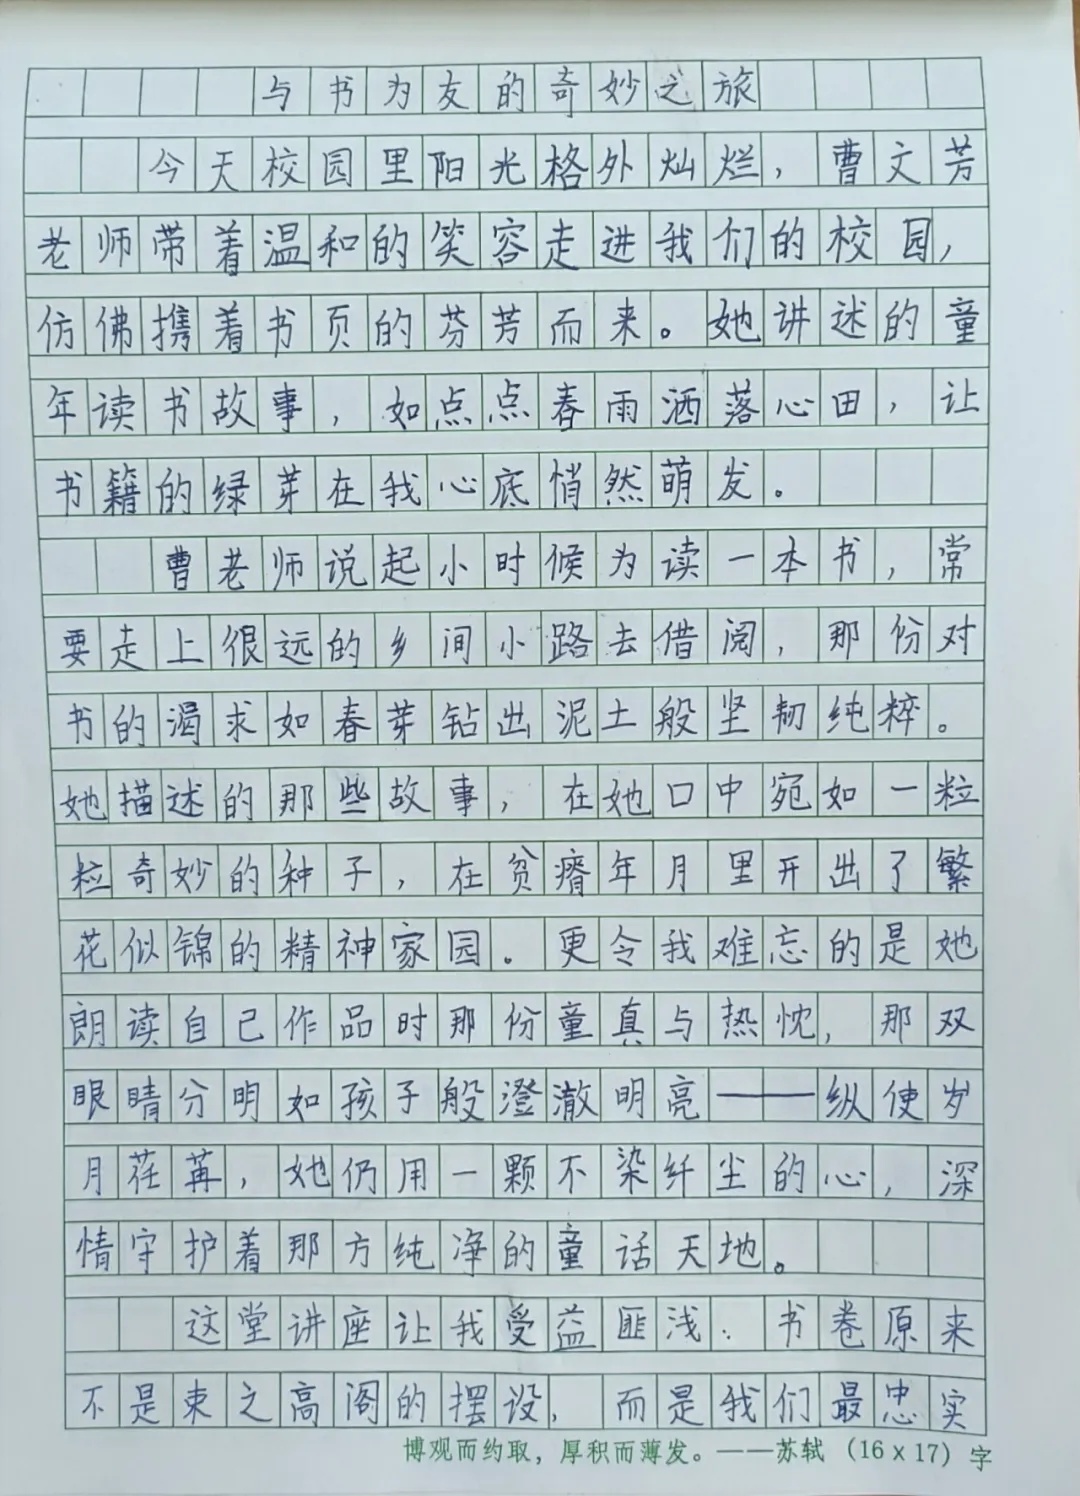 与书为友的奇妙之旅
今天校园里阳光格外灿烂，曹文芳
老师带着温和的笑容走进我们的校园，
仿佛携着书页的芬芳而来。她讲述的童
年读书故事，如点点春雨洒落心田，让
书籍的绿芽在我心底悄然萌发。
曹老师说起小时候为读一本书，常
要走上很远的乡间小路去借阅，那份对
书的渴求如春芽钻出泥土般坚韧纯粹。
她描述的那些故事，在她口中宛如一粒
粒奇妙的种子，在贫瘠年月里开出了繁
花似锦的精神家园。更令我难忘的是她
朗读自己作品时那份童真与热忱，那双
眼睛分明如孩子般澄澈明亮——纵使岁
月荏苒，她仍用一颗不染纤尘的心，深
情守护着那方纯净的童话天地。
这堂讲座让我受益匪浅：书卷原来
不是束之高阁的摆设，而是我们最忠实
博观而约取，厚积而薄发。——苏轼（16×17）字